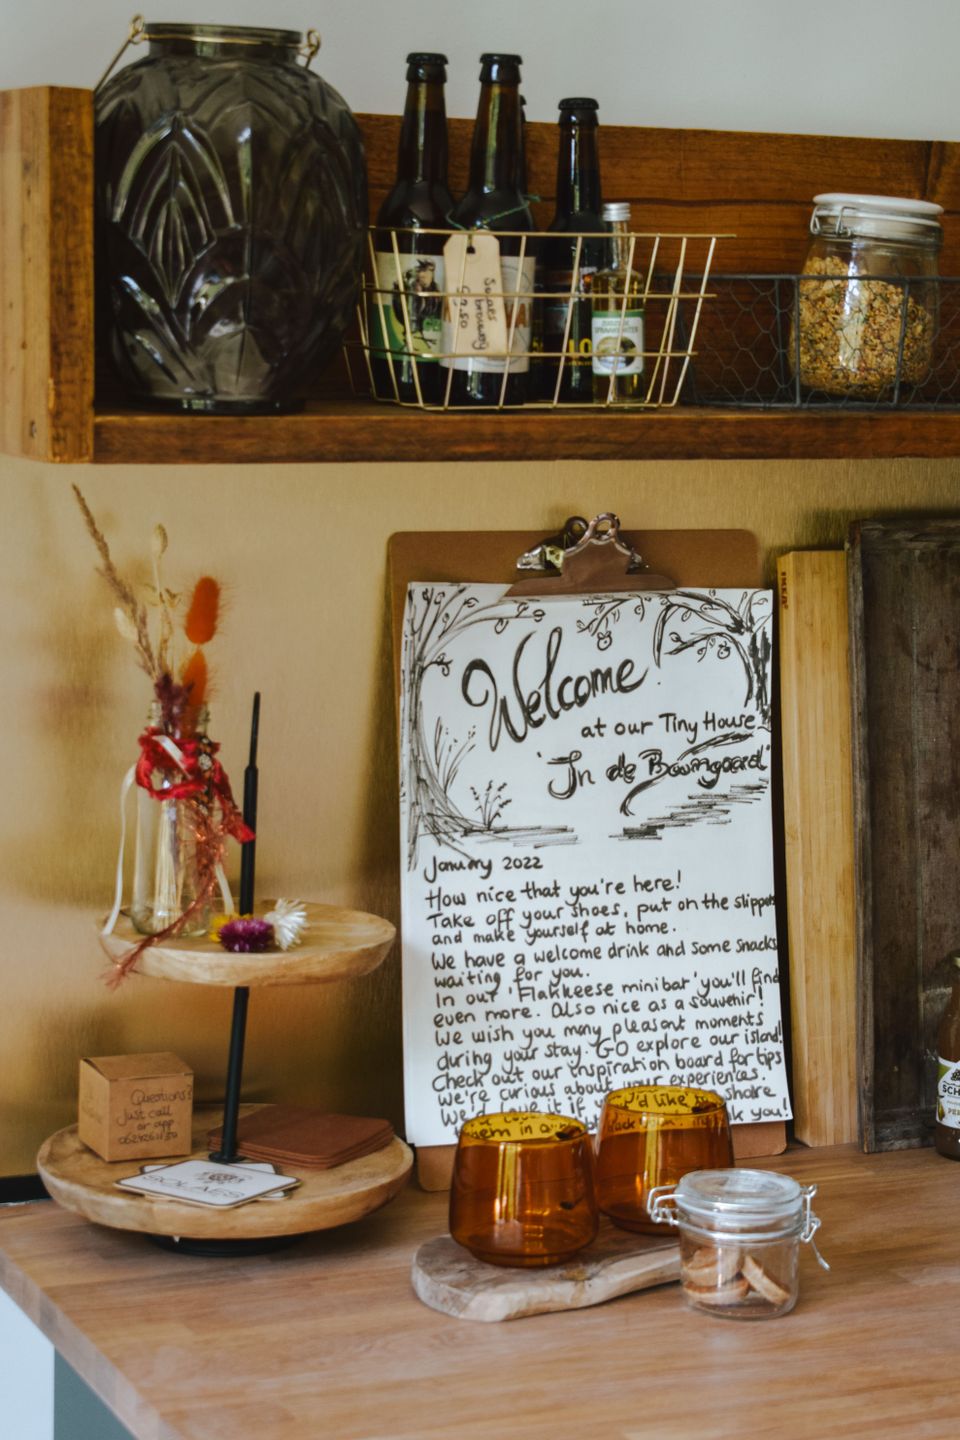 Solaes
brewery
€2.50
Welcome
at our Tiny House
'In de Boomgaard'
January 2022
How nice that you're here!
Take off your shoes, put on the slippers
and make yourself at home.
We have a welcome drink and some snacks
waiting for you.
In our 'Flakkeese minibar' you'll find
even more. Also nice as a souvenir!
We wish you many pleasant moments
during your stay. GO explore our island!
Check out our inspiration board for tips
We're curious about your experiences.
We'd love it if you'd like to share
them in our
IKEA
Questions?
Just call
or app
SOLAES